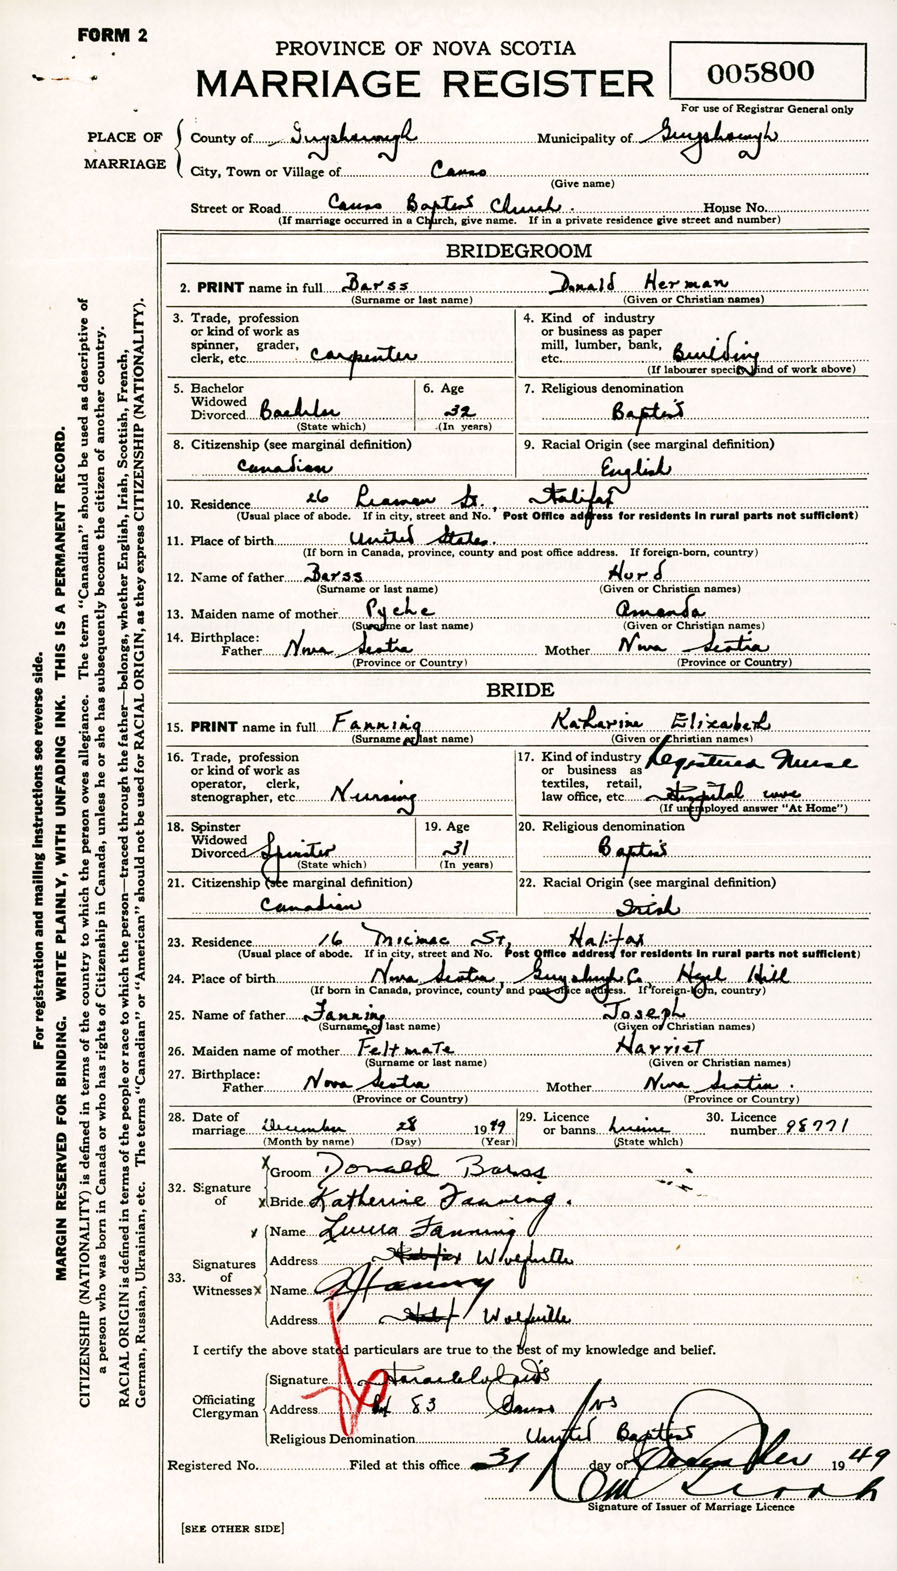 FORM 2
PROVINCE OF NOVA SCOTIA
MARRIAGE REGISTER
005800
For use of Registrar General only
PLACE OF MARRIAGE
County of Guysborough Municipality of Guysborough
City, Town or Village of Canso
(Give name)
Street or Road Canso Baptist Church. House No.
(If marriage occurred in a Church, give name. If in a private residence give street and number)
BRIDEGROOM
2. PRINT name in full Barss Donald Herman
(Surname or last name) (Given or Christian names)
3. Trade, profession or kind of work as spinner, grader, clerk, etc. Carpenter
4. Kind of industry or business as paper mill, lumber, bank, etc. Building
(If labourer specify kind of work above)
5. Bachelor Widowed Divorced Bachelor
(State which)
6. Age 32
(In years)
7. Religious denomination Baptist
8. Citizenship (see marginal definition) Canadian
9. Racial Origin (see marginal definition) English
10. Residence 26 Leaman St., Halifax
(Usual place of abode. If in city, street and No. Post Office address for residents in rural parts not sufficient)
11. Place of birth United States.
(If born in Canada, province, county and post office address. If foreign-born, country)
12. Name of father Barss Hurd
(Surname or last name) (Given or Christian names)
13. Maiden name of mother Pyche Amanda
(Surname or last name) (Given or Christian names)
14. Birthplace: Father Nova Scotia Mother Nova Scotia
(Province or Country) (Province or Country)
BRIDE
15. PRINT name in full Fanning Katharine Elizabeth
(Surname or last name) (Given or Christian names)
16. Trade, profession or kind of work as operator, clerk, stenographer, etc. Nursing
17. Kind of industry or business as textiles, retail, law office, etc. Registered Nurse Hospital
(If unemployed answer "At Home")
18. Spinster Widowed Divorced Spinster
(State which)
19. Age 31
(In years)
20. Religious denomination Baptist
21. Citizenship (see marginal definition) Canadian
22. Racial Origin (see marginal definition) Irish
23. Residence 16 Micmac St, Halifax
(Usual place of abode. If in city, street and No. Post Office address for residents in rural parts not sufficient)
24. Place of birth Nova Scotia, Guysboro Co, Hazel Hill
(If born in Canada, province, county and post office address. If foreign-born, country)
25. Name of father Fanning Joseph
(Surname or last name) (Given or Christian names)
26. Maiden name of mother Feltmate Harriet
(Surname or last name) (Given or Christian names)
27. Birthplace: Father Nova Scotia Mother Nova Scotia.
(Province or Country) (Province or Country)
28. Date of marriage December 28 1949
(Month by name) (Day) (Year)
29. Licence or banns License
(State which)
30. Licence number 98771
32. Signature of
x Groom Donald Barss
x Bride Katherine Fanning.
33. Signatures of Witnesses
x Name Fanning
Address Wolfville
x Name
Address Wolfville
I certify the above stated particulars are true to the best of my knowledge and belief.
Officiating Clergyman
Signature
Address 83 Canso NS
Religious Denomination United Baptist
Registered No. Filed at this office 31 day of December 1949
Signature of Issuer of Marriage Licence
[SEE OTHER SIDE]
For registration and mailing instructions see reverse side.
MARGIN RESERVED FOR BINDING. WRITE PLAINLY, WITH UNFADING INK. THIS IS A PERMANENT RECORD.
CITIZENSHIP (NATIONALITY) is defined in terms of the country to which the person owes allegiance. The term "Canadian" should be used as descriptive of
a person who was born in Canada or who has rights of Citizenship in Canada, unless he or she has subsequently become the citizen of another country.
RACIAL ORIGIN is defined in terms of the people or race to which the person—traced through the father—belongs, whether English, Irish, Scottish, French,
German, Russian, Ukrainian, etc. The terms "Canadian" or "American" should not be used for RACIAL ORIGIN, as they express CITIZENSHIP (NATIONALITY).